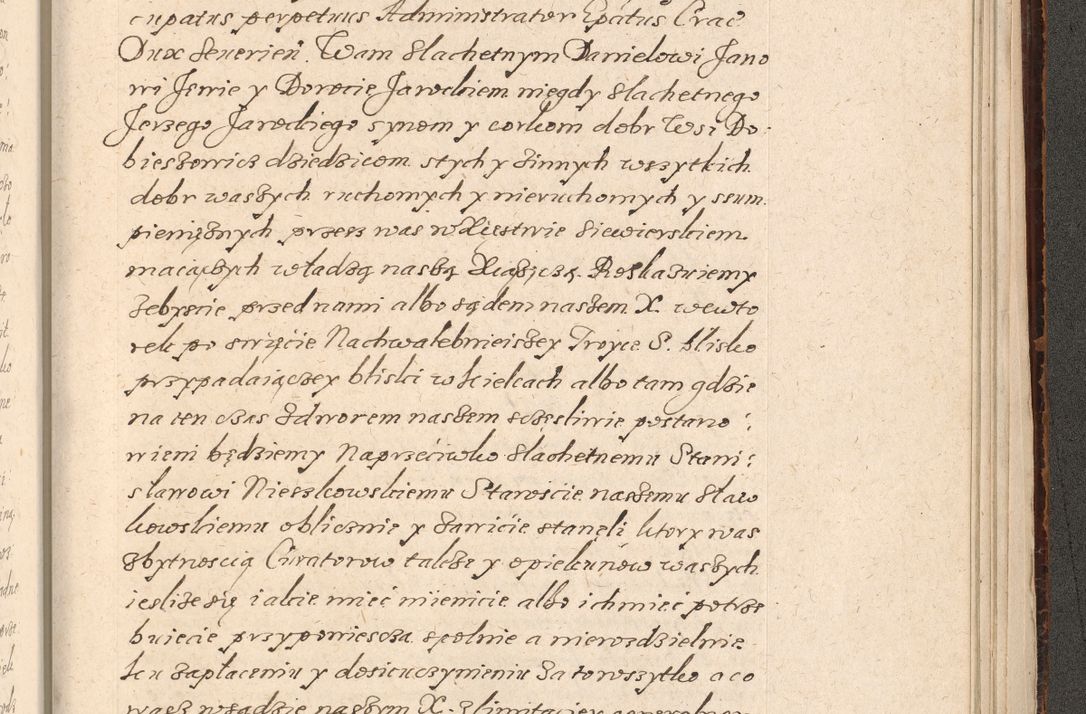 cupatus perpetuus Administrator Epātus Crac
Dux Seuerień. Wam Slachetnym Danielowi Jano
wi Jewie y Dorocie Jarockiem niegdy Slachetnego
Jerzego Jarockiego synom y corkom dobr Wsi Do
bieszowicz dziedzicom stych y zinnych wszytkich
dobr waszych ruchomych y nieruchomych y ssum
pieniężnych przesz was w Xięstwie Siewierskiem
maiących władzą naszą Xiążęczą. Roskazuiemy
żebyscie przed nami albo sądem naszem X. wewto
rek po swięcie Nachwalebnieiszey Troyce S. blisko
przypadaiączey bliski w Kielcach albo tam gdzie
na ten czas zdworem naszem sczęsliwie postano
wieni będziemy Naprzećiwko Slachetnemu Stani
sławowi Nieszkowskiemu Staroście naszemu Sław
kowskiemu oblicznie y zawicie stanęli ktory was
zbytnoscią Curatorow także y opiekunów waszych
iesliże się iakie mieć mienicie albo ich mieć potrze
buiecie przyponiescza spolnie a nierozdzielnie
ku zapłaceniu y dosicuczymieniu za towszytko oco
wasz wsądzie naszym X. zlimitaciey generalney